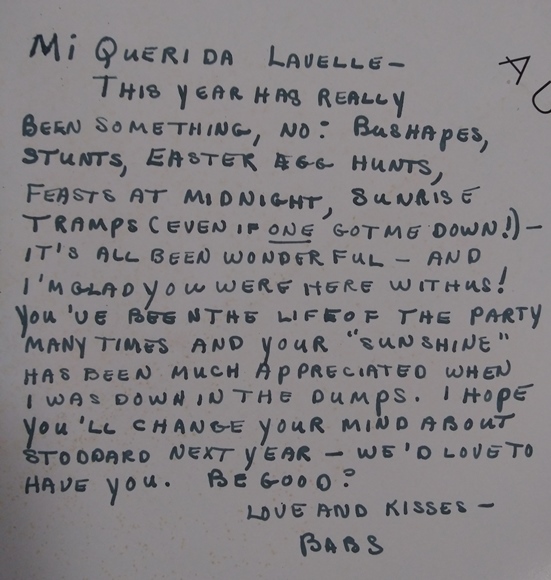 Mi QUERIDA LAVELLE–
THIS YEAR HAS REALLY
BEEN SOMETHING, NO? BUSHAPES,
STUNTS, EASTER EGG HUNTS,
FEASTS AT MIDNIGHT, SUNRISE
TRAMPS (EVEN IF ONE GOT ME DOWN!)–
IT'S ALL BEEN WONDERFUL – AND
I'M GLAD YOU WERE HERE WITH US!
YOU'VE BEEN THE LIFE OF THE PARTY
MANY TIMES AND YOUR "SUNSHINE"
HAS BEEN MUCH APPRECIATED WHEN
I WAS DOWN IN THE DUMPS. I HOPE
YOU'LL CHANGE YOUR MIND ABOUT
STODDARD NEXT YEAR – WE'D LOVE TO
HAVE YOU. BE GOOD?
LOVE AND KISSES –
BABS